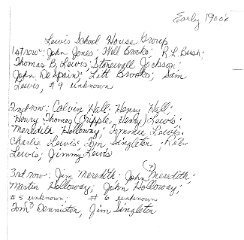 Early 1900's
Lewis School House Group
1st row: John Jones: Will Brooks; R.L. Bush:
Thomas B. Lewis: Stonewall Jackson:
John DeSpain; Litt Brooks; Sam
Lewis, #9 unknown
2nd row: Calvin Hall: Henry Hall:
Henry Thomas Cripple; Henry Lewis:
Meredith Holloway;
Charlie Lewis: Tom Singleton:
Lewis; Jimmy Lewis
3rd row: Jim Meredith: John Meredith:
Martin Holloway; John Holloway;
#5 unknown: #6 unknown
Tom Denniston, Jim Singleton